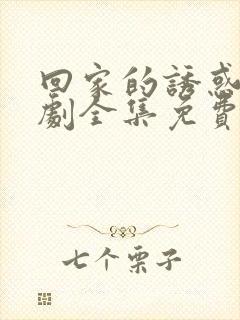 回家的誘惑
劇全集免費
七个栗子